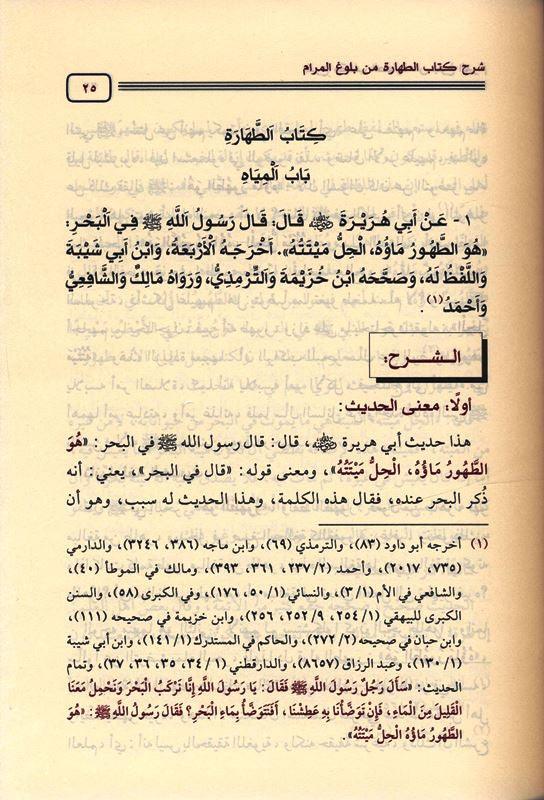 شرح كتاب الطهارة من بلوغ المرام
٢٥
كِتَابُ اَلطَّهَارَةِ
بَابُ اَلْمِيَاهِ
١- عَنْ أَبِي هُرَيْرَةَ رضي الله عنه قَالَ: قَالَ رَسُولُ اَللَّهِ ﷺ فِي اَلْبَحْرِ:
«هُوَ اَلطَّهُورُ مَاؤُهُ، اَلْحِلُّ مَيْتَتُهُ». أَخْرَجَهُ اَلْأَرْبَعَةُ، وَابْنُ أَبِي شَيْبَةَ
وَاللَّفْظُ لَهُ، وَصَحَّحَهُ ابْنُ خُزَيْمَةَ وَاَلتِّرْمِذِيُّ، وَرَوَاهُ مَالِكٌ وَالشَّافِعِيُّ
وَأَحْمَدُ(١).
الـشـــرح:
أولًا: معنى الحديث:
هذا حديث أبي هريرة رضي الله عنه، قال: قال رسول الله ﷺ في البحر: «هُوَ
الطَّهُورُ مَاؤُهُ، الْحِلُّ مَيْتَتُهُ»، ومعنى قوله: «قال في البحر»، يعني: أنه
ذُكر البحر عنده، فقال هذه الكلمة، وهذا الحديث له سبب، وهو أن
(١) أخرجه أبو داود (٨٣)، والترمذي (٦٩)، وابن ماجه (٣٨٦، ٣٢٤٦)، والدارمي
(٧٣٥، ٢٠١٧)، وأحمد (٢/ ٢٣٧، ٣٦١، ٣٩٣)، ومالك في الموطأ (٤٠)،
والشافعي في الأم (١/ ٣)، والنسائي (١/ ٥٠، ١٧٦)، وفي الكبرى (٥٨)، والسنن
الكبرى للبيهقي (١/ ٢٥٤، ٩/ ٢٥٢، ٢٥٦)، وابن خزيمة في صحيحه (١١١)،
وابن حبان في صحيحه (٢/ ٢٧٢)، والحاكم في المستدرك (١/ ١٤١)، وابن أبي شيبة
(١/ ١٣٠)، وعبد الرزاق (٨٦٥٧)، والدارقطني (١/ ٣٤، ٣٥، ٣٦، ٣٧)، وتمام
الحديث: «سَأَلَ رَجُلٌ رَسُولَ اللَّهِ ﷺ فَقَالَ: يَا رَسُولَ اللَّهِ إِنَّا نَرْكَبُ الْبَحْرَ وَنَحْمِلُ مَعَنَا
الْقَلِيلَ مِنَ الْمَاءِ، فَإِنْ تَوَضَّأْنَا بِهِ عَطِشْنَا، أَفَنَتَوَضَّأُ بِمَاءِ الْبَحْرِ؟ فَقَالَ رَسُولُ اللَّهِ ﷺ: «هُوَ
الطَّهُورُ مَاؤُهُ الْحِلُّ مَيْتَتُهُ».